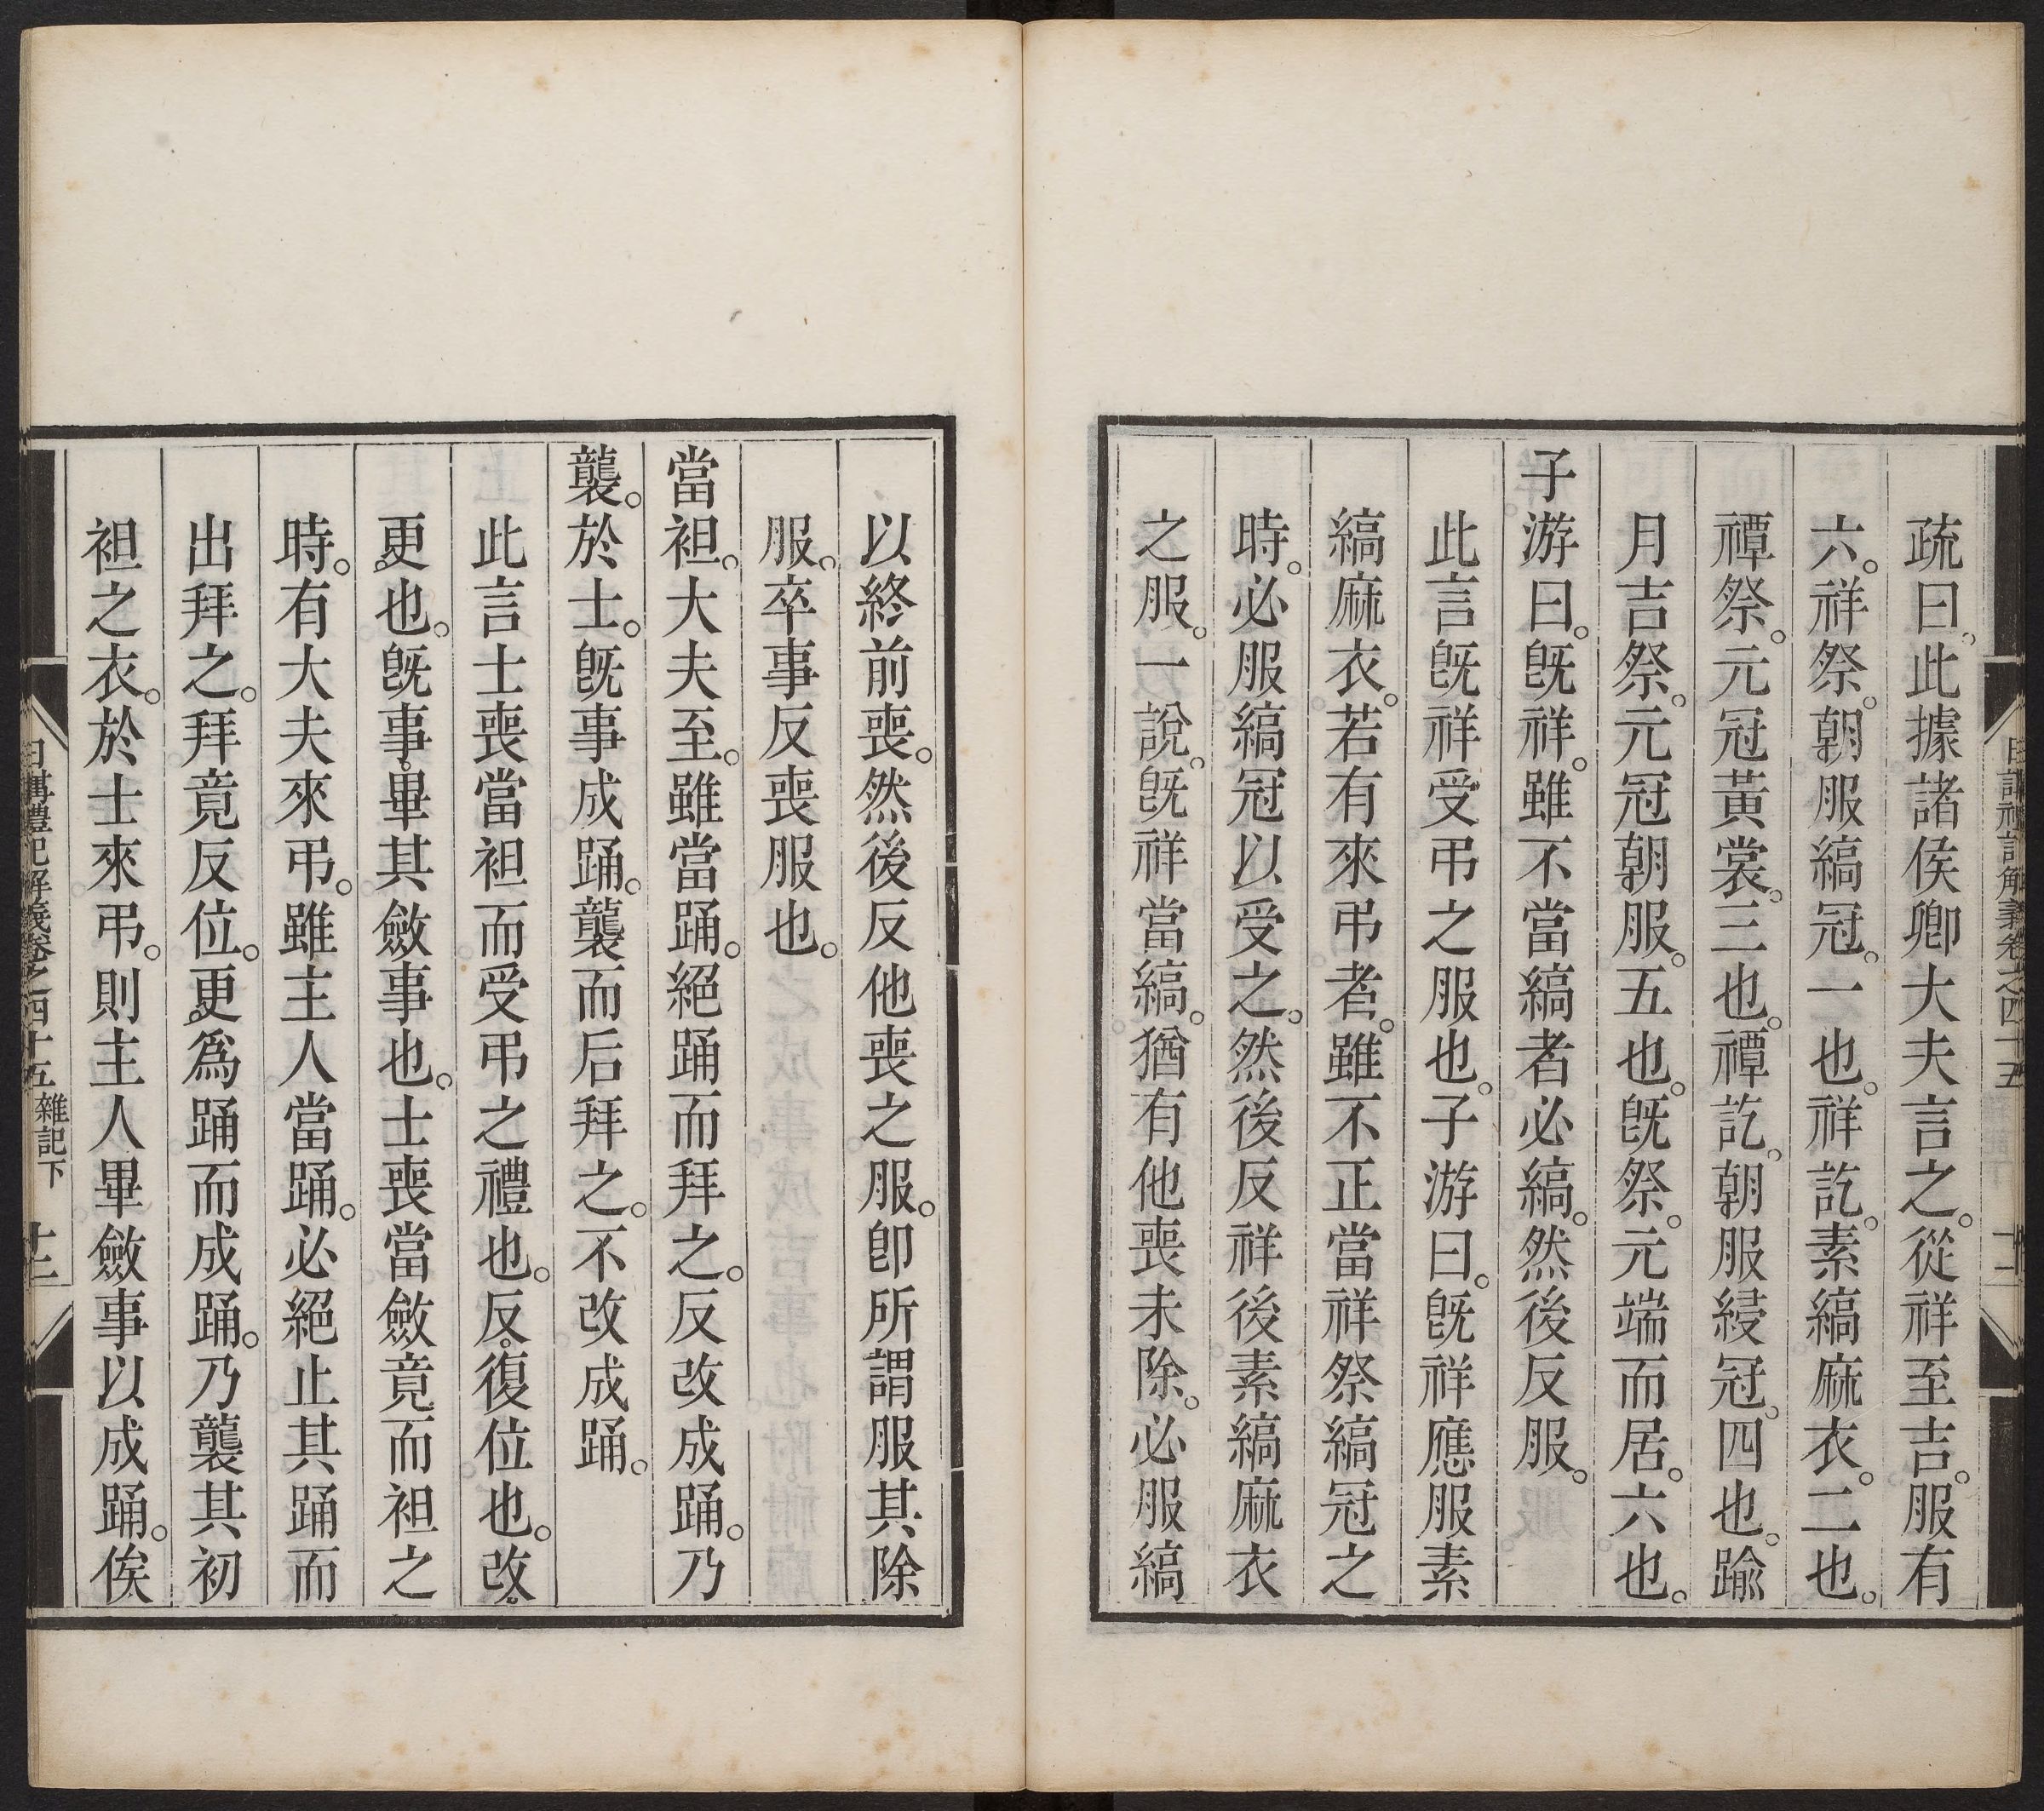 疏曰。此據諸侯卿大夫言之。從祥至吉。服有
六。祥祭。朝服縞冠。一也。祥訖。素縞麻衣。二也。
禫祭。元冠黃裳。三也。禫訖。朝服綅冠。四也。踰
月吉祭。元冠朝服。五也。旣祭。元端而居。六也。
子游曰。旣祥。雖不當縞者必縞。然後反服。
此言旣祥受弔之服也。子游曰。旣祥應服素
縞麻衣。若有來弔者。雖不正當祥祭縞冠之
時。必服縞冠以受之。然後反祥後素縞麻衣
之服。一說。旣祥當縞。猶有他喪未除。必服縞
以終前喪。然後反他喪之服。卽所謂服其除
服。卒事反喪服也。
當袒。大夫至。雖當踊。絕踊而拜之。反改成踊。乃
襲。於士。旣事成踊。襲而后拜之。不改成踊。
此言士喪當袒而受弔之禮也。反。復位也。改。
更也。旣事。畢其斂事也。士喪當斂竟而袒之
時。有大夫來弔。雖主人當踊。必絕止其踊而
出拜之。拜竟反位。更。爲踊而成踊。乃襲其初
袒之衣。於士來弔。則主人畢斂事以成踊。俟
日講禮記解義卷之四十五 雜記下 十二